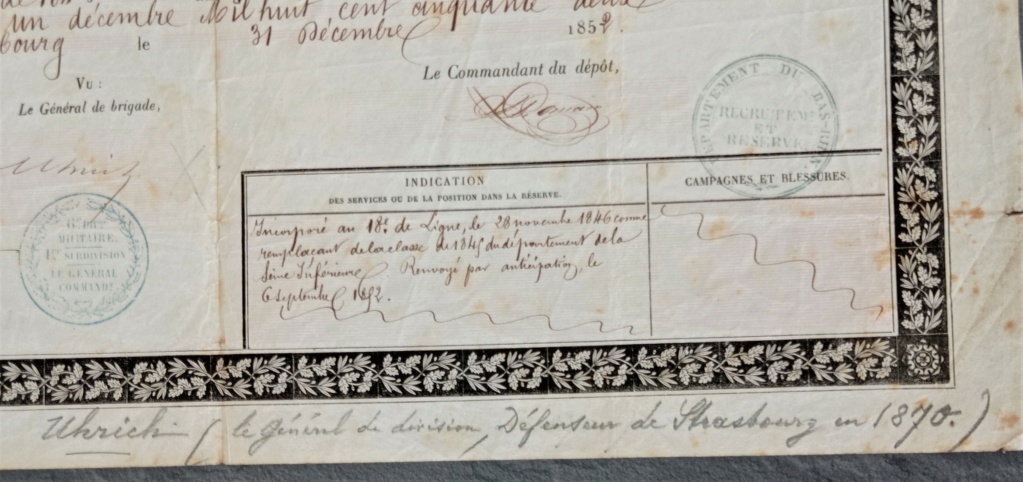 un décembre Mil huit cent cinquante deux
bourg le 31 Décembre 1852.
Vu :
Le Général de brigade,
Le Commandant du dépôt,
DÉPARTEMENT DU BAS-RHIN
RECRUTEMT
ET
RESERVE
Uhrich
6e DIVon
MILITAIRE.
1re SUBDIVISION
LE GÉNÉRAL
COMMANDt
INDICATION
DES SERVICES OU DE LA POSITION DANS LA RÉSERVE.
CAMPAGNES ET BLESSURES.
Incorporé au 18e de Ligne, le 28 novembre 1846 comme
remplaçant de la classe de 1845 du département de la
Seine Inférieure. Renvoyé par anticipation, le
6 septembre 1852.
Uhrich (le Général de division, Défenseur de Strasbourg en 1870.)